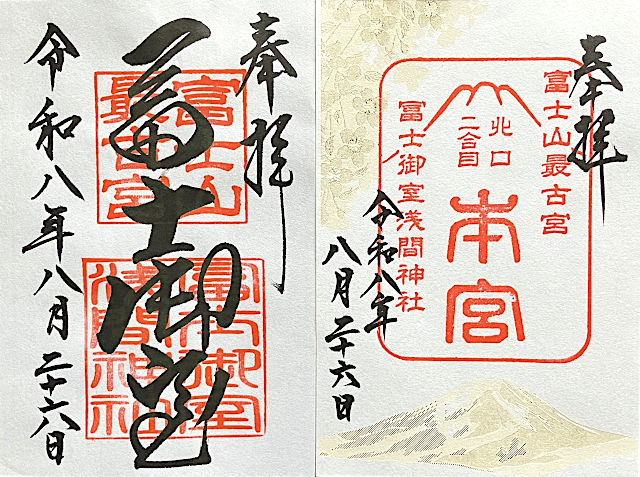 奉拝
冨士御室
富士山
最古宮
冨士御室
浅間神社
令和八年八月二十六日
奉拝
富士山最古宮
北口
二合目
本宮
冨士御室浅間神社
令和八年
八月二十六日